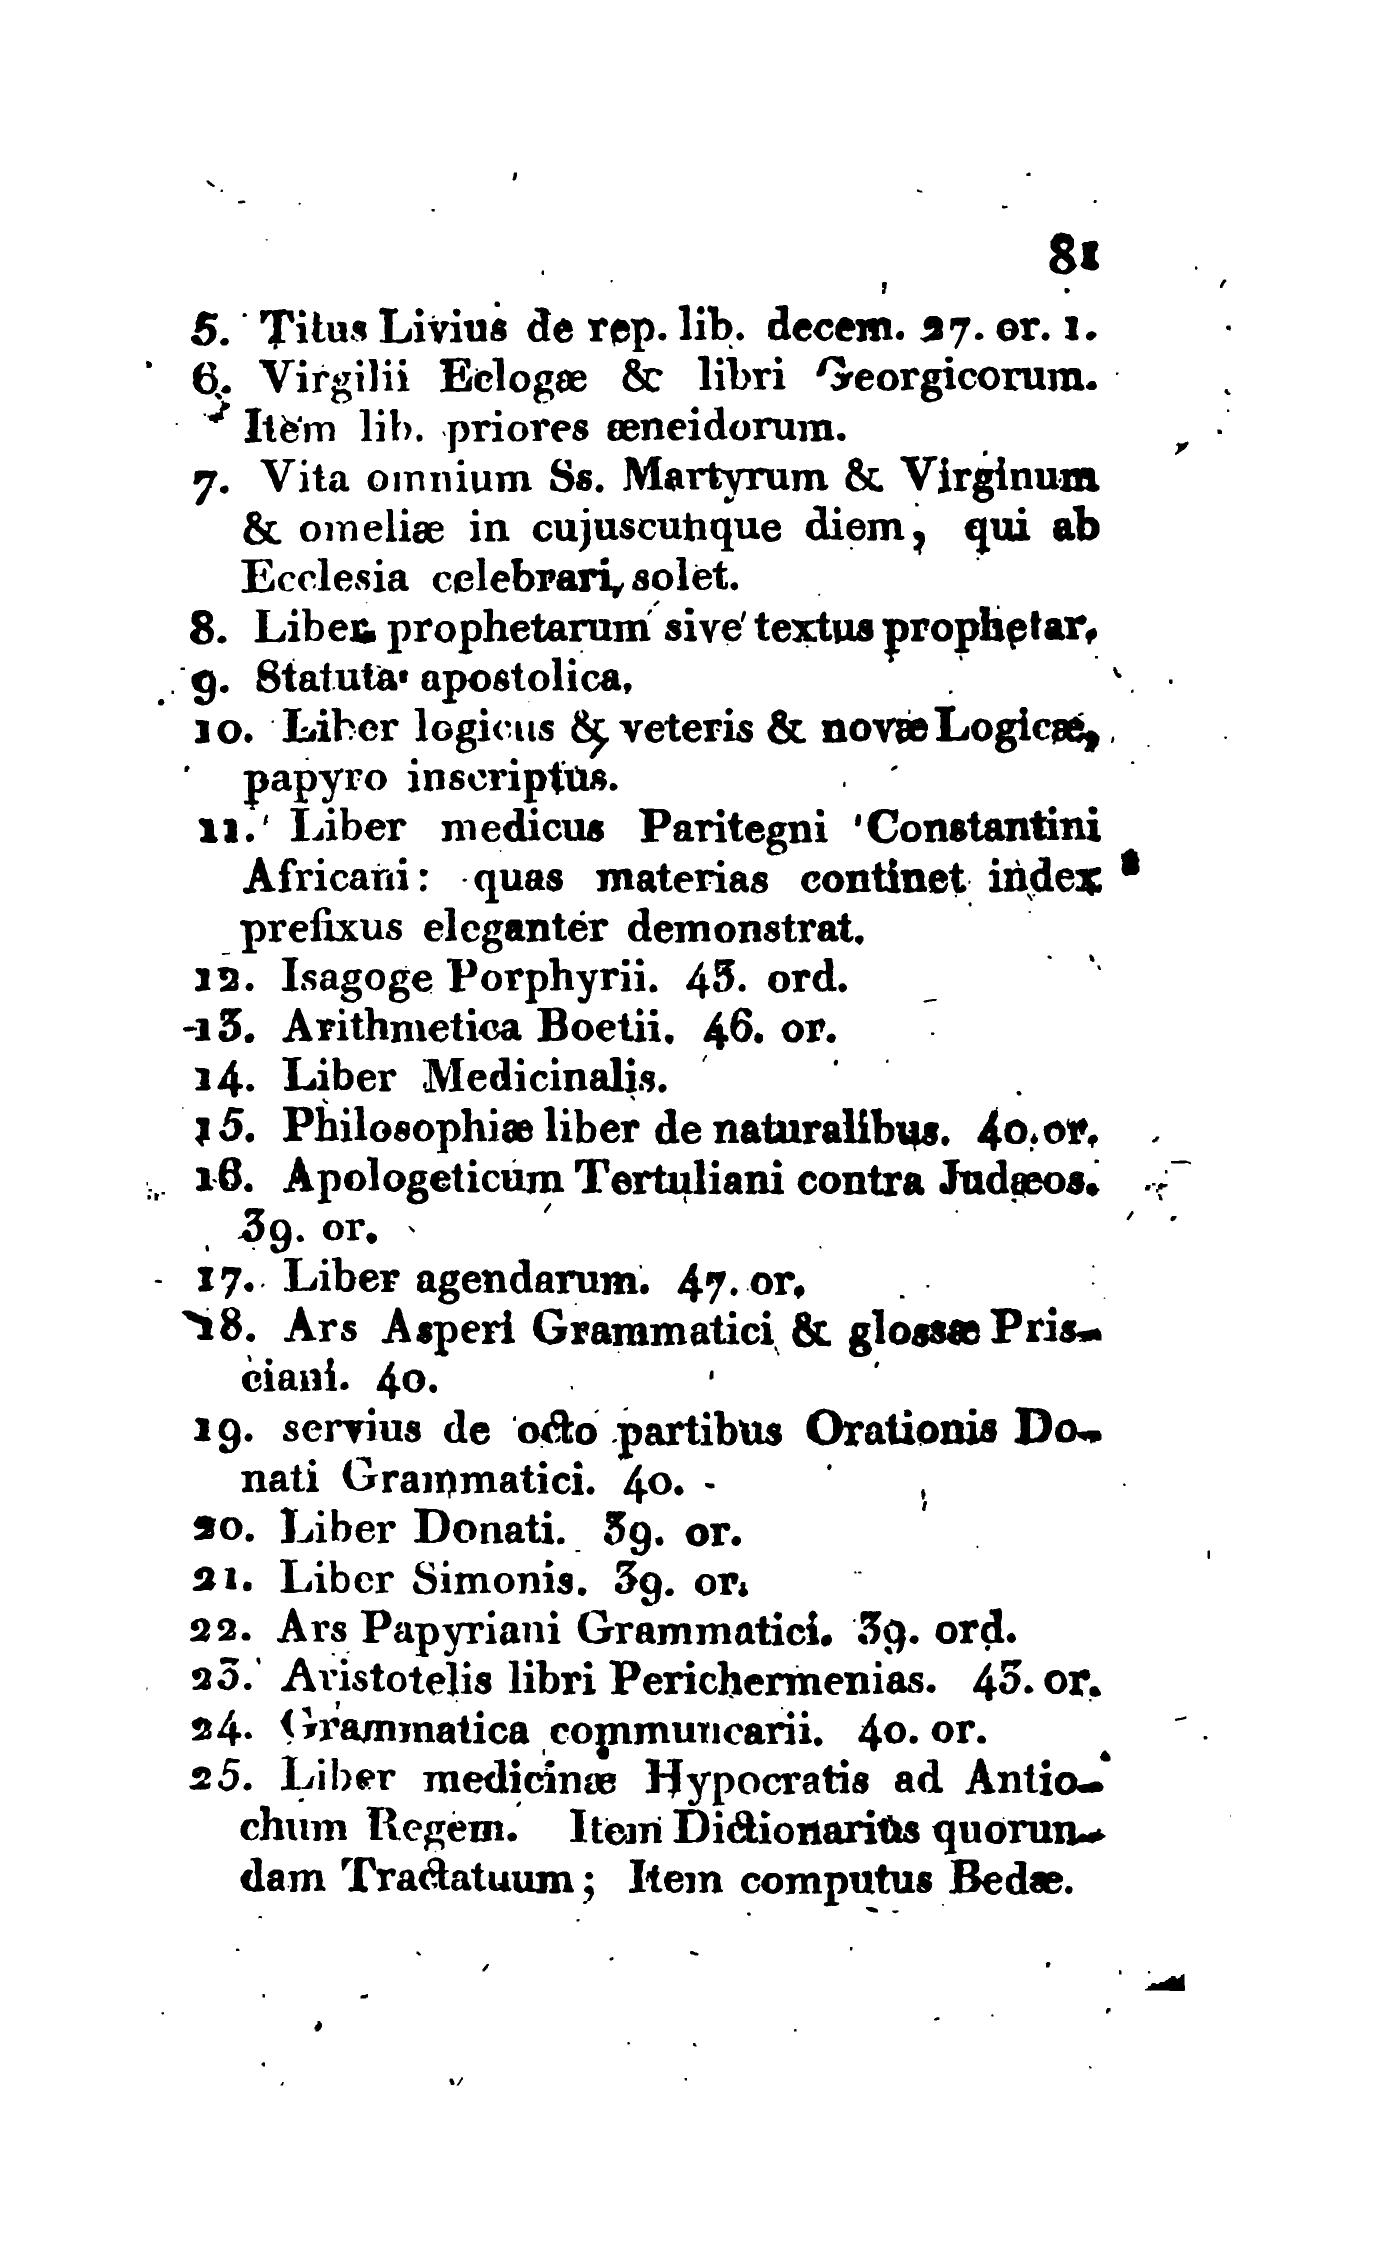 81
5. Titus Livius de rep. lib. decem. 27. or. 1.
6. Virgilii Eclogæ & libri Georgicorum.
Item lib. priores æneidorum.
7. Vita omnium Ss. Martyrum & Virginum
& omeliæ in cujuscunque diem, qui ab
Ecclesia celebrari, solet.
8. Liber prophetarum sive textus prophetar,
9. Statuta apostolica,
10. Liber logicus & veteris & novæ Logicæ,
papyro inscriptus.
11. Liber medicus Paritegni Constantini
Africani: quas materias continet index
prefixus eleganter demonstrat.
12. Isagoge Porphyrii. 43. ord.
13. Arithmetica Boetii. 46. or.
14. Liber Medicinalis.
15. Philosophiæ liber de naturalibus. 40. or.
16. Apologeticum Tertuliani contra Judæos.
39. or.
17. Liber agendarum. 47. or.
18. Ars Asperi Grammatici & glossæ Pris-
ciani. 40.
19. servius de octo partibus Orationis Do-
nati Grammatici. 40.
20. Liber Donati. 39. or.
21. Liber Simonis. 39. or.
22. Ars Papyriani Grammatici. 39. ord.
23. Aristotelis libri Perichermenias. 43. or.
24. Grammatica communcarii. 40. or.
25. Liber medicinæ Hypocratis ad Antio-
chum Regem. Item Dictionarius quorun-
dam Tractatuum; Item computus Bedæ.